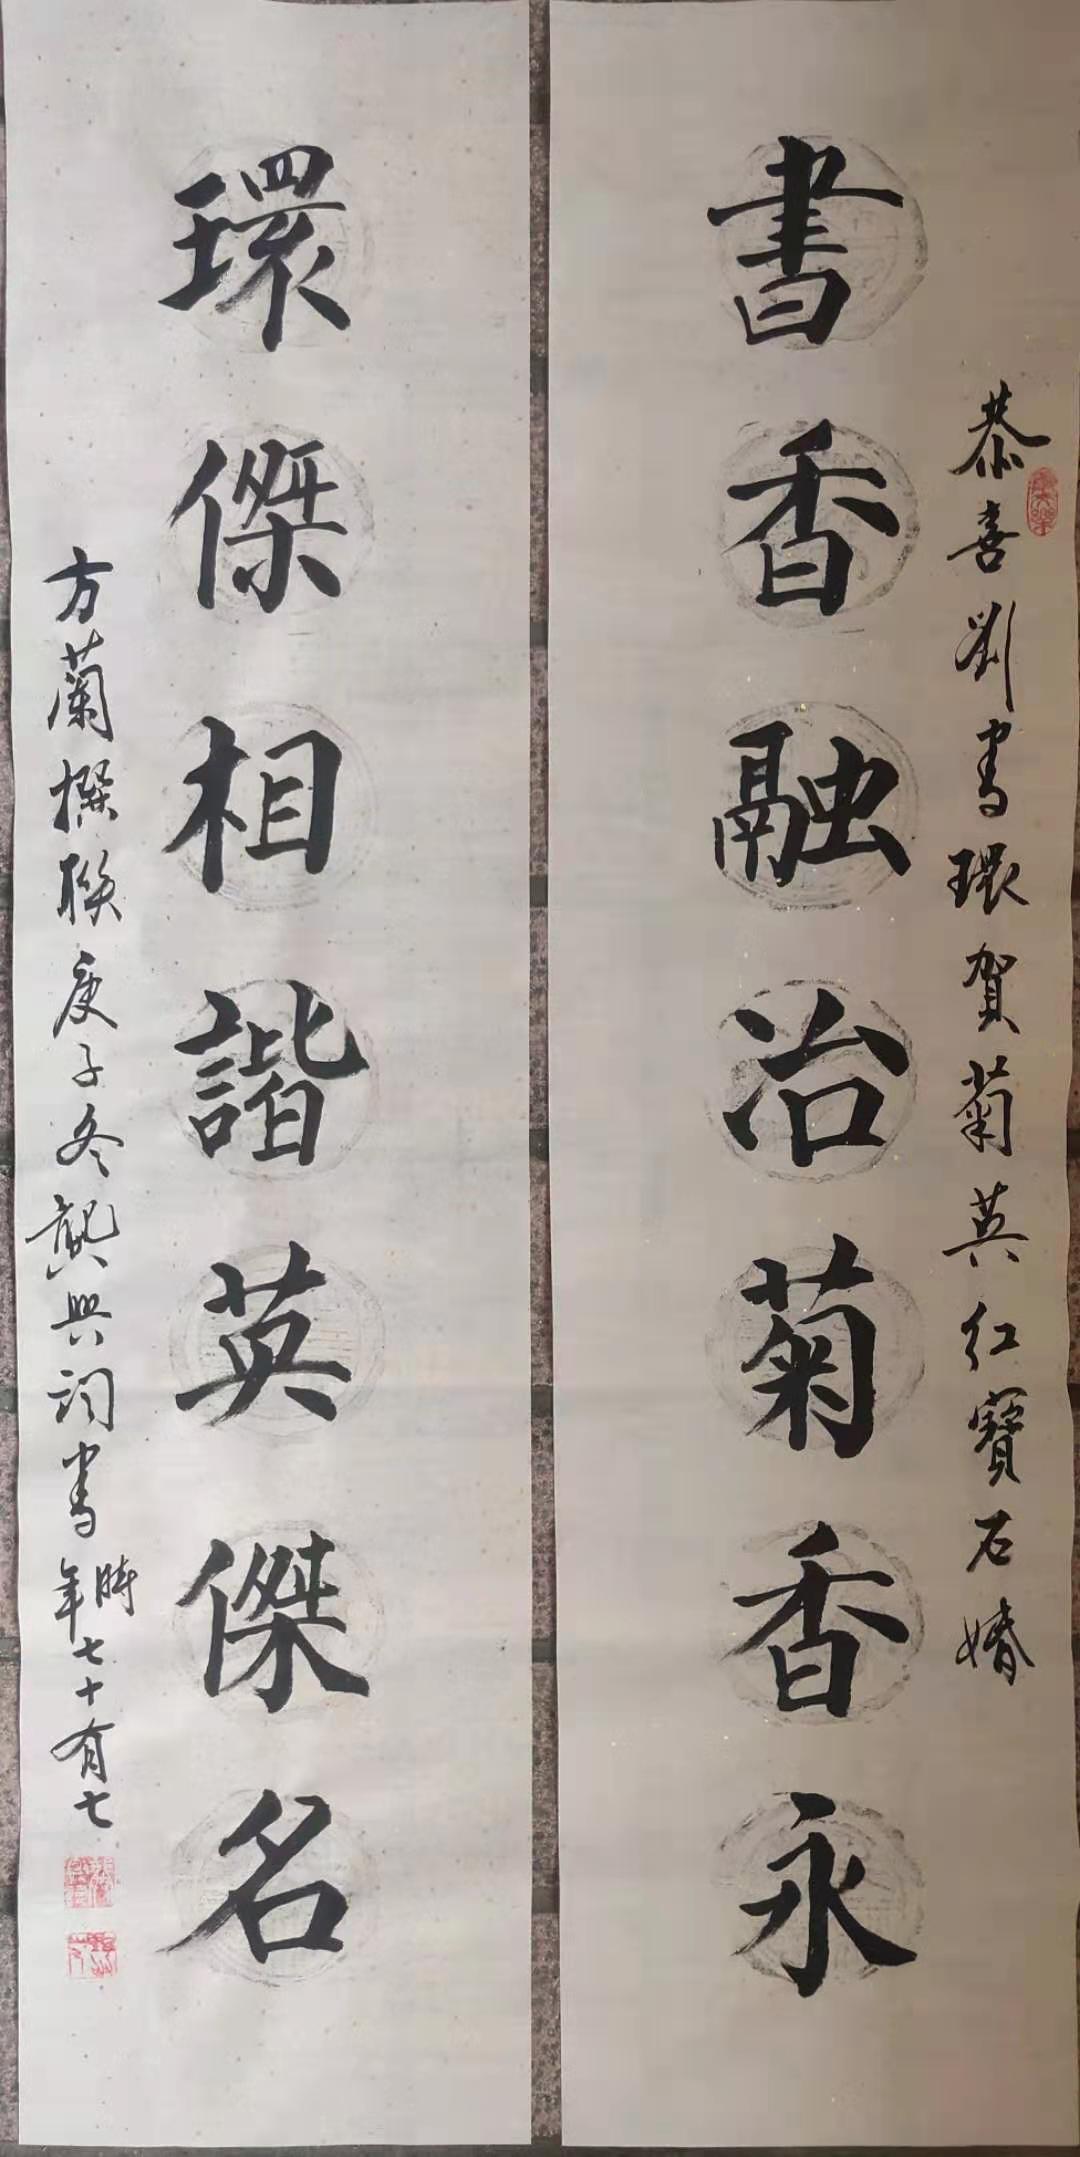 恭喜劉書環賀菊英紅寶石婚
書香融冶菊香永
環傑相諧英傑名
方蘭撰聯庚子冬龔興詞書時年七十有七